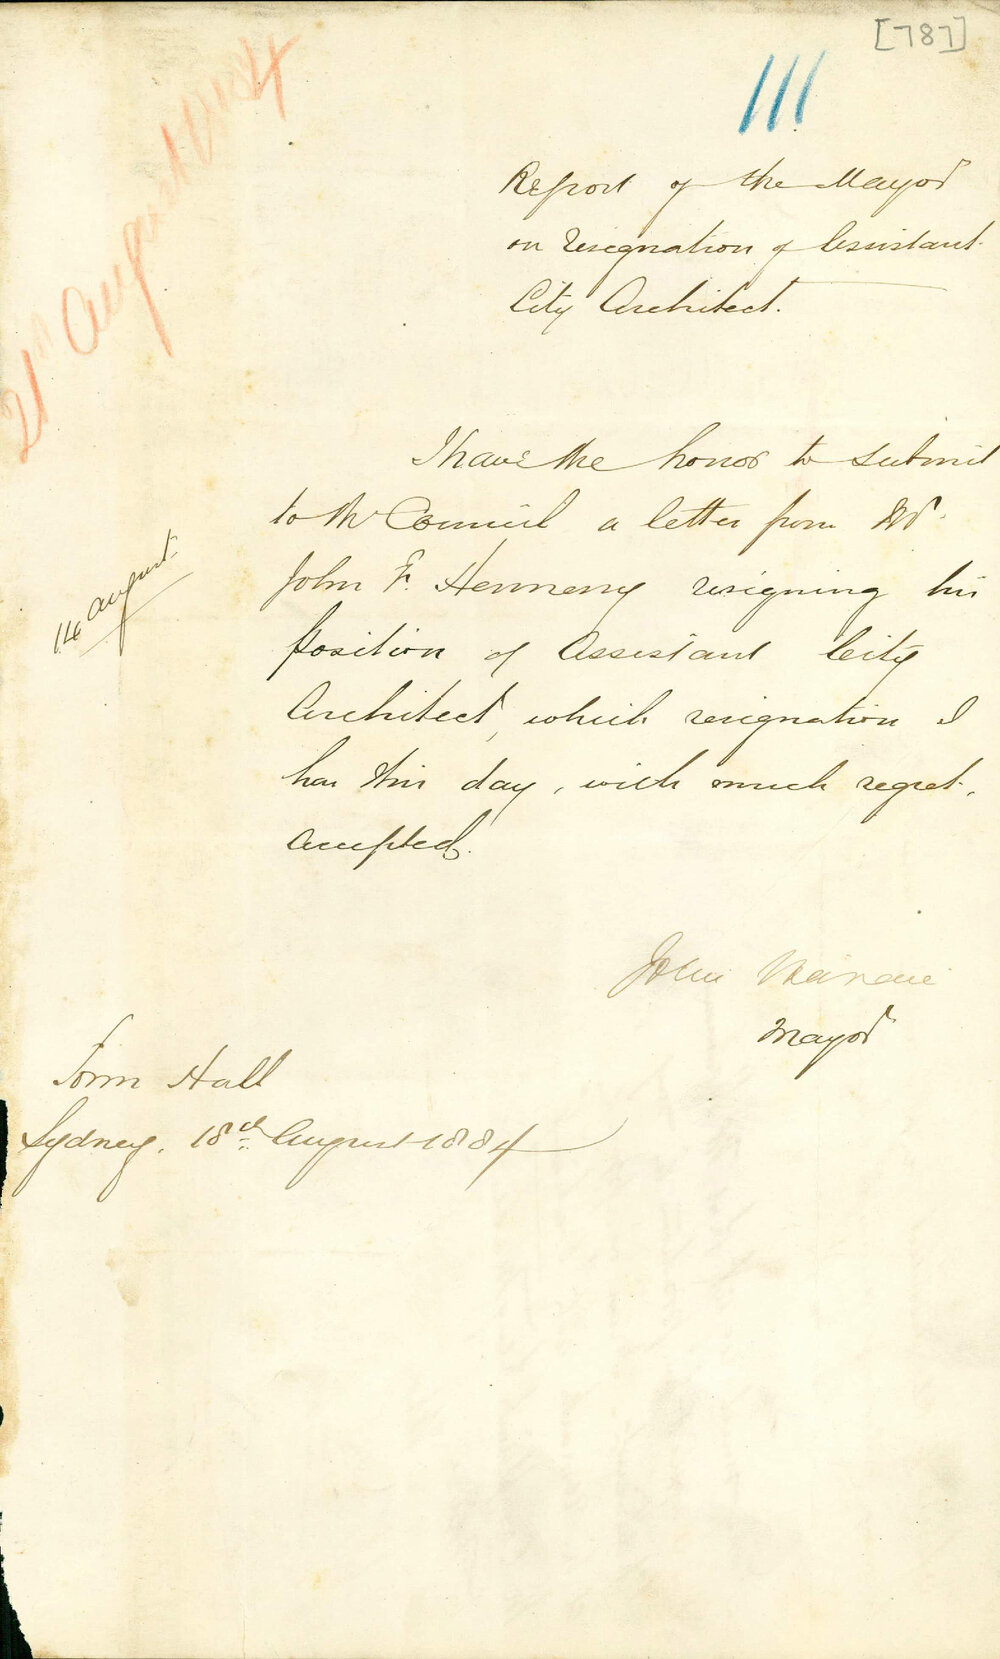 [787]
111
21st Augt 1884
Report of the Mayor
on resignation of Assistant
City Architect.
I have the honor to submit
to the Council a letter from Mr.
John F. Hennessy resigning his
position of Assistant City
Architect, which resignation I
have this day, with much regret,
accepted.
14 August
John Hardie
Mayor
Town Hall
Sydney. 18th August 1884